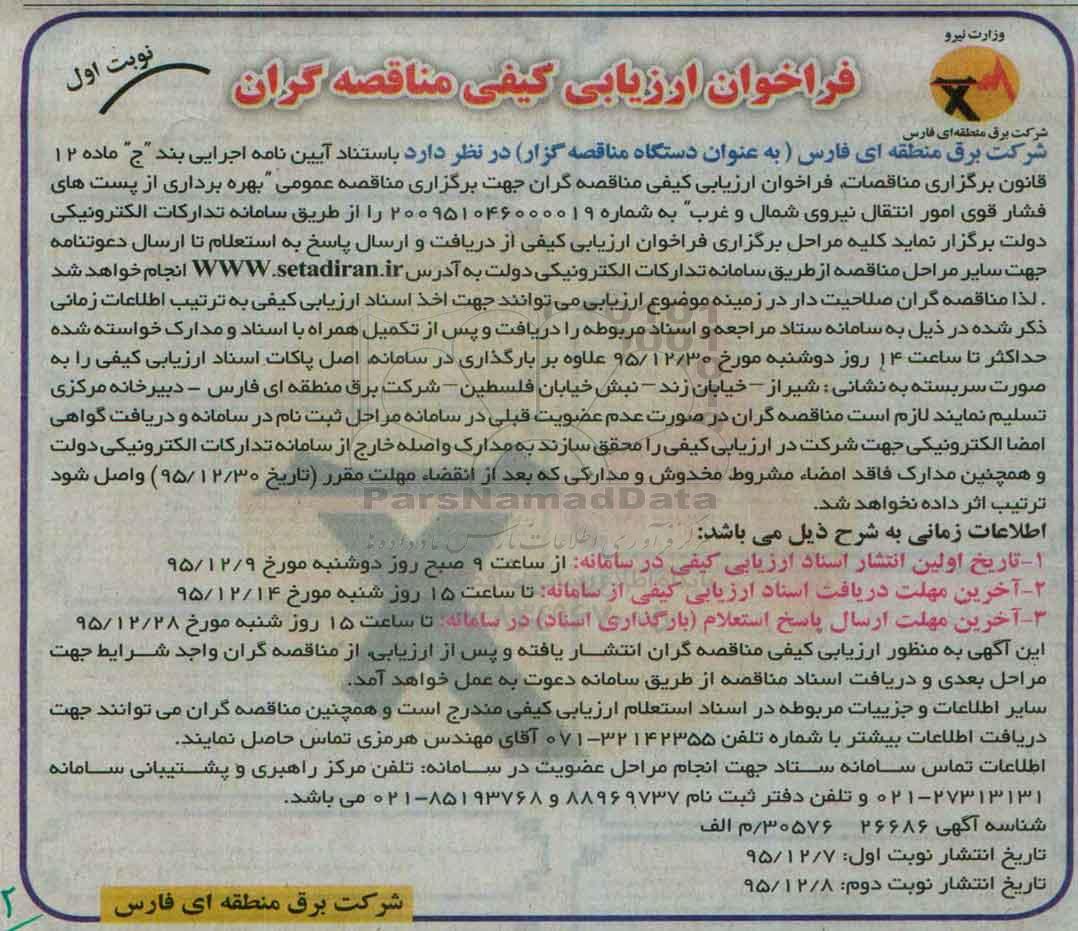 وزارت نیرو
شرکت برق منطقه‌ای فارس
نوبت اول
فراخوان ارزیابی کیفی مناقصه گران
شرکت برق منطقه ای فارس ( به عنوان دستگاه مناقصه گزار) در نظر دارد باستناد آیین نامه اجرایی بند "ج" ماده ۱۲
قانون برگزاری مناقصات، فراخوان ارزیابی کیفی مناقصه گران جهت برگزاری مناقصه عمومی "بهره برداری از پست های
فشار قوی امور انتقال نیروی شمال و غرب" به شماره ۲۰۰۹۵۱۰۴۶۰۰۰۰۱۹ را از طریق سامانه تدارکات الکترونیکی
دولت برگزار نماید کلیه مراحل برگزاری فراخوان ارزیابی کیفی از دریافت و ارسال پاسخ به استعلام تا ارسال دعوتنامه
جهت سایر مراحل مناقصه ازطریق سامانه تدارکات الکترونیکی دولت به آدرس WWW.setadiran.ir انجام خواهد شد
. لذا مناقصه گران صلاحیت دار در زمینه موضوع ارزیابی می توانند جهت اخذ اسناد ارزیابی کیفی به ترتیب اطلاعات زمانی
ذکر شده در ذیل به سامانه ستاد مراجعه و اسناد مربوطه را دریافت و پس از تکمیل همراه با اسناد و مدارک خواسته شده
حداکثر تا ساعت ۱۴ روز دوشنبه مورخ ۹۵/۱۲/۳۰ علاوه بر بارگذاری در سامانه، اصل پاکات اسناد ارزیابی کیفی را به
صورت سربسته به نشانی : شیراز – خیابان زند – نبش خیابان فلسطین – شرکت برق منطقه ای فارس - دبیرخانه مرکزی
تسلیم نمایند لازم است مناقصه گران در صورت عدم عضویت قبلی در سامانه مراحل ثبت نام در سامانه و دریافت گواهی
امضا الکترونیکی جهت شرکت در ارزیابی کیفی را محقق سازند به مدارک واصله خارج از سامانه تدارکات الکترونیکی دولت
و همچنین مدارک فاقد امضاء مشروط، مخدوش و مدارکی که بعد از انقضاء مهلت مقرر (تاریخ ۹۵/۱۲/۳۰) واصل شود
ترتیب اثر داده نخواهد شد.
ParsNamadData
اطلاعات زمانی به شرح ذیل می باشد:
۱-تاریخ اولین انتشار اسناد ارزیابی کیفی در سامانه: از ساعت ۹ صبح روز دوشنبه مورخ ۹۵/۱۲/۹
۲-آخرین مهلت دریافت اسناد ارزیابی کیفی از سامانه: تا ساعت ۱۵ روز شنبه مورخ ۹۵/۱۲/۱۴
۳-آخرین مهلت ارسال پاسخ استعلام (بارگذاری اسناد) در سامانه: تا ساعت ۱۵ روز شنبه مورخ ۹۵/۱۲/۲۸
این آگهی به منظور ارزیابی کیفی مناقصه گران انتشار یافته و پس از ارزیابی، از مناقصه گران واجد شرایط جهت
مراحل بعدی و دریافت اسناد مناقصه از طریق سامانه دعوت به عمل خواهد آمد.
سایر اطلاعات و جزییات مربوطه در اسناد استعلام ارزیابی کیفی مندرج است و همچنین مناقصه گران می توانند جهت
دریافت اطلاعات بیشتر با شماره تلفن ۳۲۱۴۲۳۵۵-۰۷۱ آقای مهندس هرمزی تماس حاصل نمایند.
اطلاعات تماس سامانه ستاد جهت انجام مراحل عضویت در سامانه: تلفن مرکز راهبری و پشتیبانی سامانه
۲۷۳۱۳۱۳۱-۰۲۱ و تلفن دفتر ثبت نام ۸۸۹۶۹۷۳۷ و ۸۵۱۹۳۷۶۸-۰۲۱ می باشد.
شناسه آگهی ۲۶۶۸۶ ۳۰۵۷۶/م الف
تاریخ انتشار نوبت اول: ۹۵/۱۲/۷
تاریخ انتشار نوبت دوم: ۹۵/۱۲/۸
شرکت برق منطقه ای فارس
۲